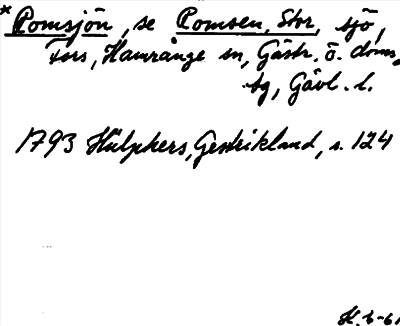 * Pomsjön, se Pomsen, Stor, sjö,
Fors, Hamrånge sn, Gästr. ö. doms.
tg, Gävl. l.
1793 Hülphers, Gestrikland, s. 124